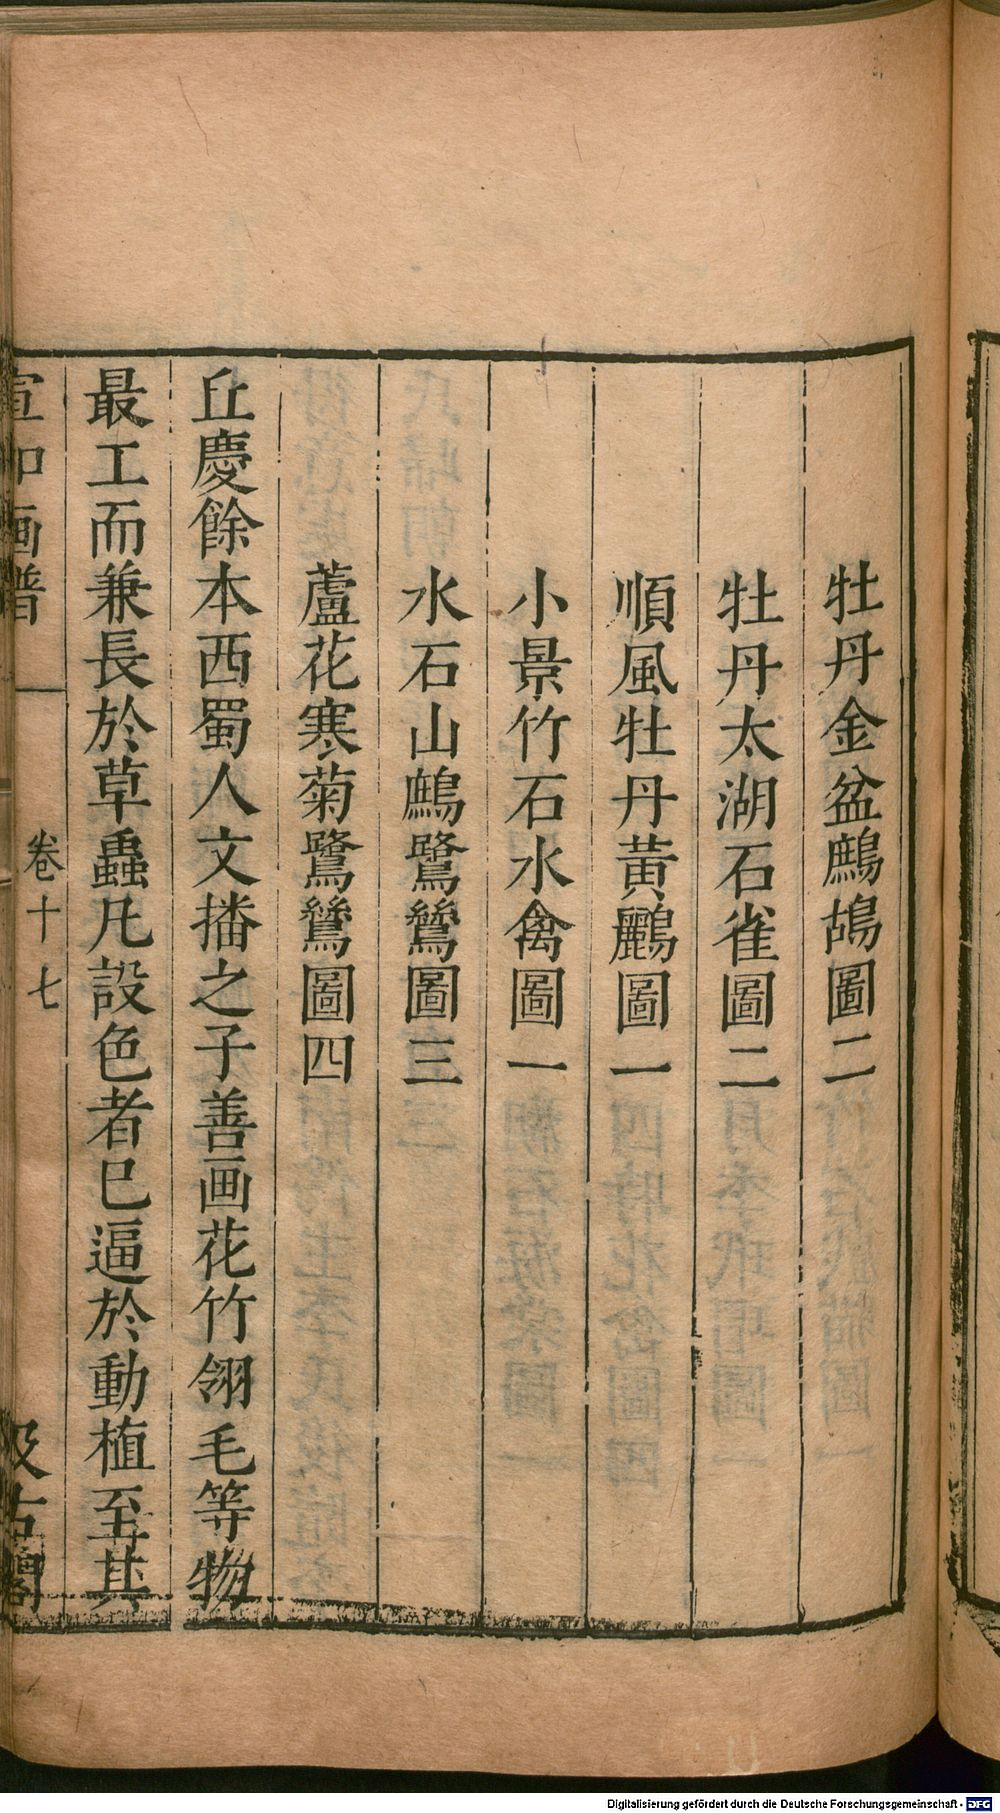 牡丹金盆鷓鴣圖二
牡丹太湖石雀圖二
順風牡丹黃鸝圖一
小景竹石水禽圖一
水石山鷓鷺鷥圖三
蘆花寒菊鷺鷥圖四
丘慶餘本西蜀人文播之子善画花竹翎毛等物
最工而兼長於草蟲凡設色者已逼於動植至其
宣和画譜 卷十七 汲古閣
Digitalisierung gefördert durch die Deutsche Forschungsgemeinschaft - DFG